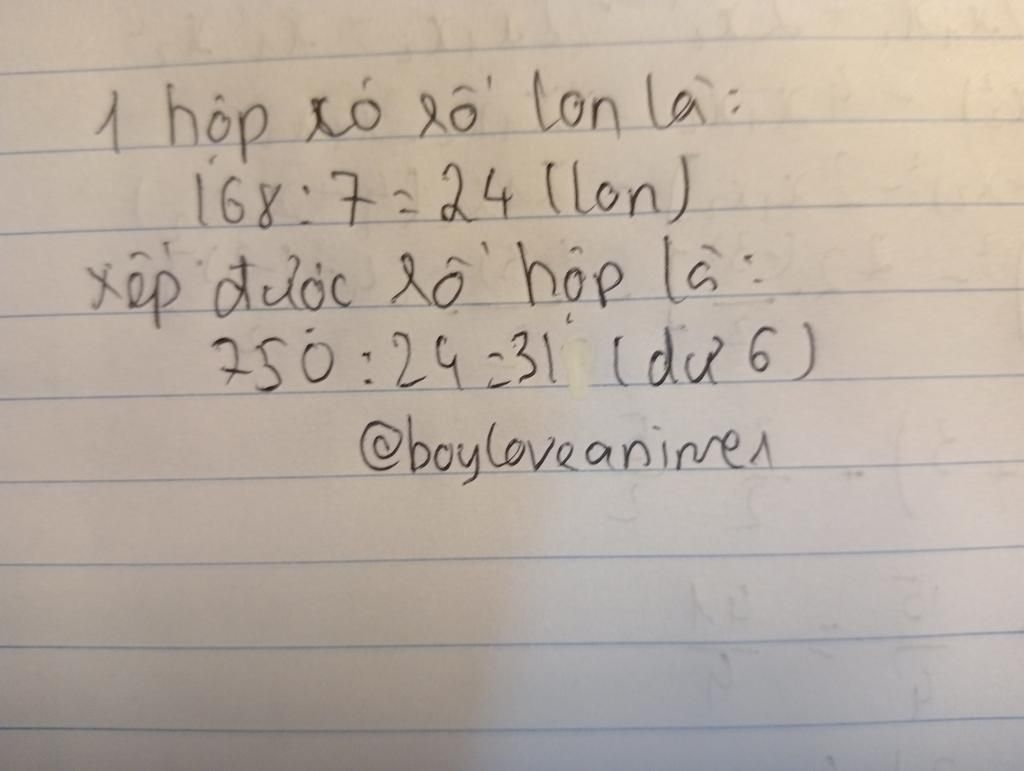 1 hộp có số lon là:
168 : 7 = 24 (lon)
xếp được số hộp là:
750 : 24 = 31 (dư 6)
@boyloveanime1